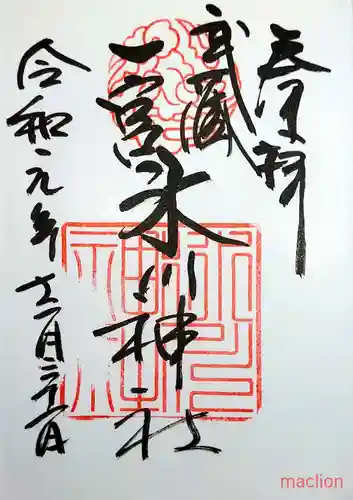 奉拝
武蔵
一宮氷川神社
令和元年十二月三十一日
氷川神社
maclion